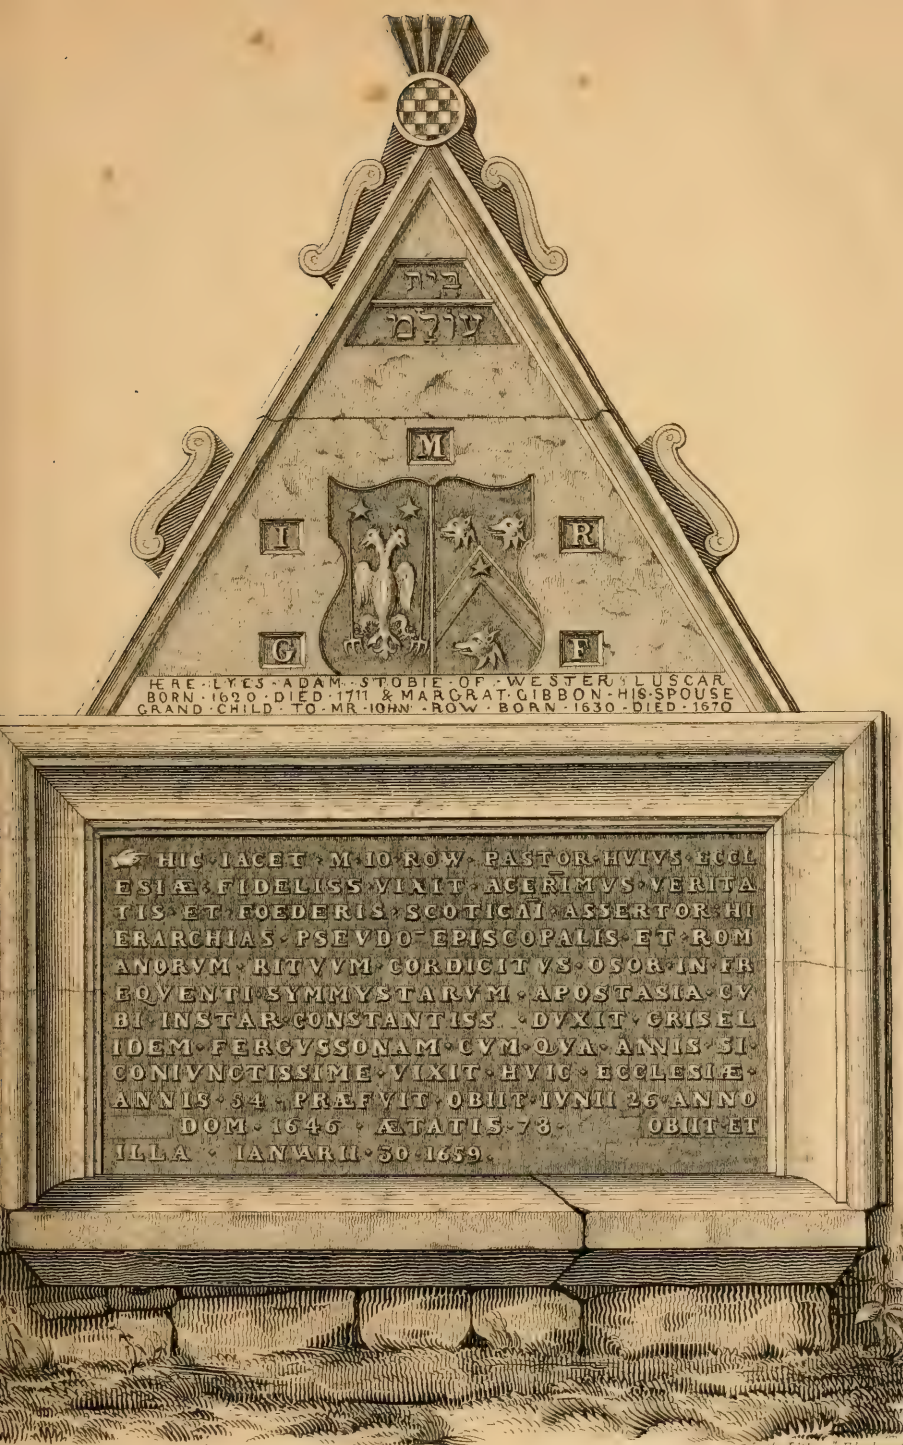 בֵּית
עוֹלָמ
M
I R
G F
HERE · LYES · ADAM · STOBIE · OF · WESTER · LUSCAR
BORN · 1620 · DIED · 1711 & MARGRAT · GIBBON · HIS · SPOUSE
GRAND · CHILD · TO · MR · IOHN · ROW · BORN · 1630 · DIED · 1670
☞ HIC · IACET · M · IO · ROW · PASTOR · HVIVS · ECCL
ESIÆ · FIDELISS · VIXIT · ACERIMVS · VERITA
TIS · ET · FOEDERIS · SCOTICAI · ASSERTOR · HI
ERARCHIAS · PSEVDO-EPISCOPALIS · ET · ROM
ANORVM · RITVVM · CORDICITVS · OSOR · IN · FR
EQVENTI · SYMMYSTARVM · APOSTASIA · CV
BI · INSTAR · CONSTANTISS · DVXIT · GRISEL
IDEM · FERGVSSONAM · CVM · QVA · ANNIS · 51 ·
CONIVNCTISSIME · VIXIT · HVIC · ECCLESIÆ ·
ANNIS · 54 · PRÆFVIT · OBIIT · IVNII 26 · ANNO
DOM · 1646 · ÆTATIS · 78 · OBIIT · ET
ILLA · IANVARII · 30 · 1659 ·